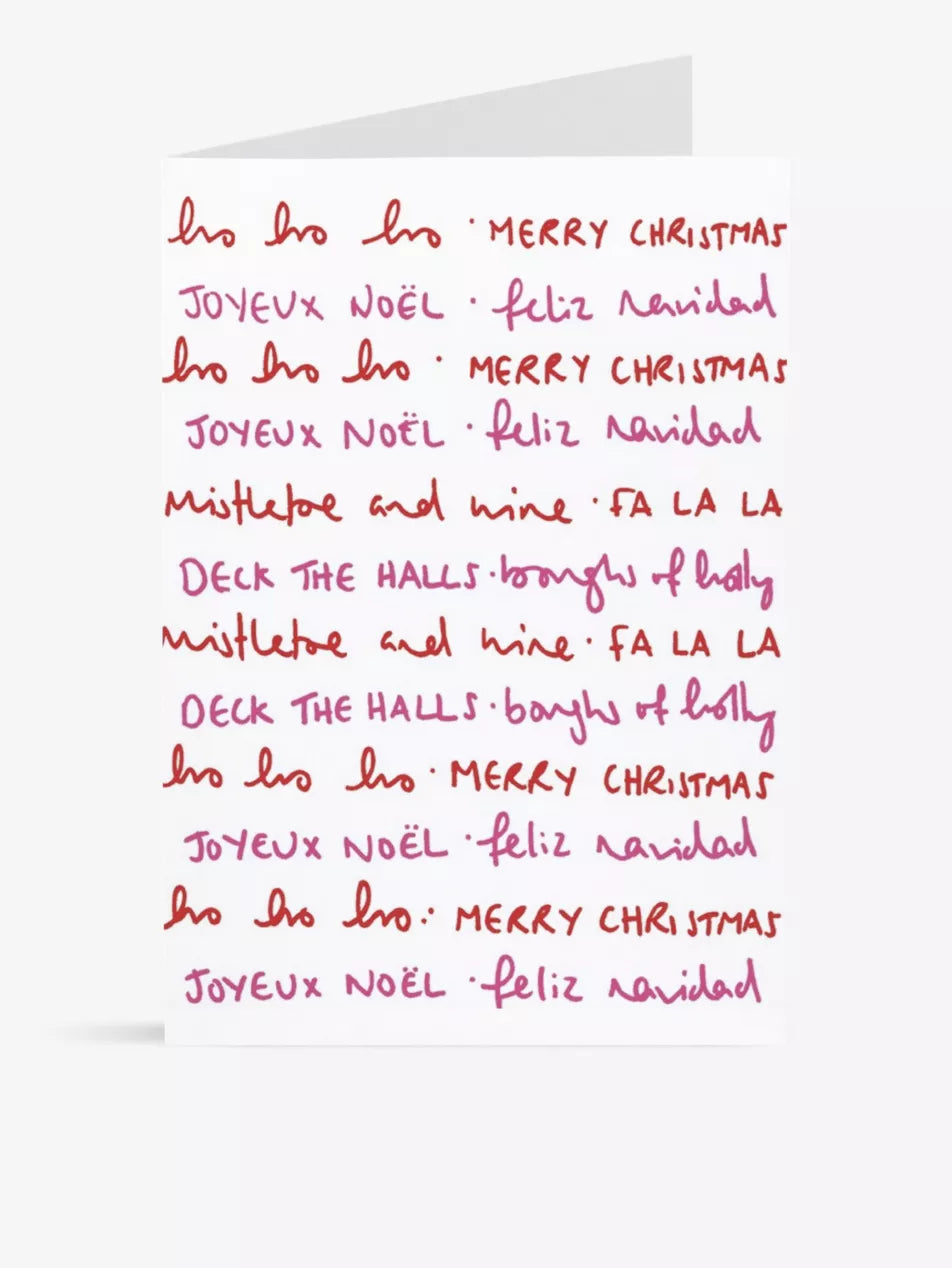 ho ho ho · MERRY CHRISTMAS
JOYEUX NOËL · feliz navidad
ho ho ho · MERRY CHRISTMAS
JOYEUX NOËL · feliz navidad
Mistletoe and wine · FA LA LA
DECK THE HALLS · boughs of holly
Mistletoe and wine · FA LA LA
DECK THE HALLS · boughs of holly
ho ho ho · MERRY CHRISTMAS
JOYEUX NOËL · feliz navidad
ho ho ho · MERRY CHRISTMAS
JOYEUX NOËL · feliz navidad